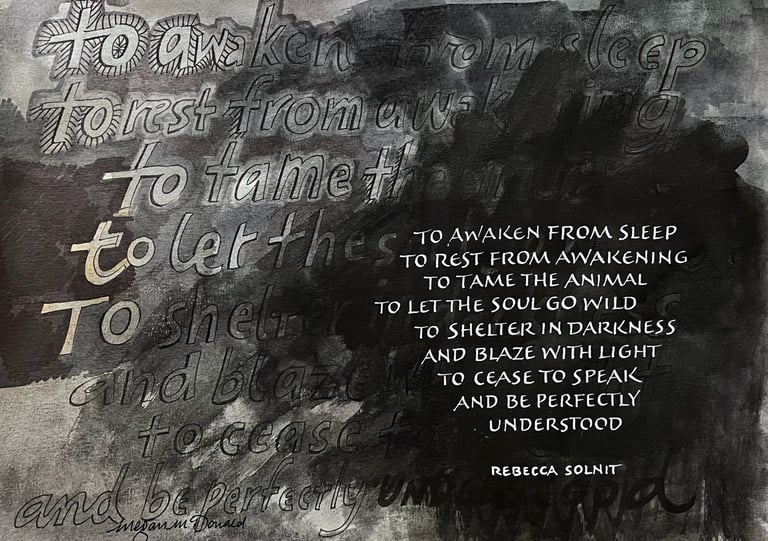 to awaken from sleep
to rest from awakening
to tame the
to let the s
To shelter in
and blaze
to cease to
and be perfectly understood
TO AWAKEN FROM SLEEP
TO REST FROM AWAKENING
TO TAME THE ANIMAL
TO LET THE SOUL GO WILD
TO SHELTER IN DARKNESS
AND BLAZE WITH LIGHT
TO CEASE TO SPEAK
AND BE PERFECTLY
UNDERSTOOD
REBECCA SOLNIT
megan mcDonald